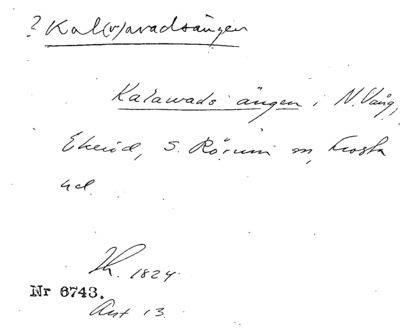 ? Kal(v)avadsängen
Kalawads ängen i N. Vång,
Ekeröd, S. Rörums m, Frosta
hd.
Lh. 1824.
Nr 6743.
Akt 13.